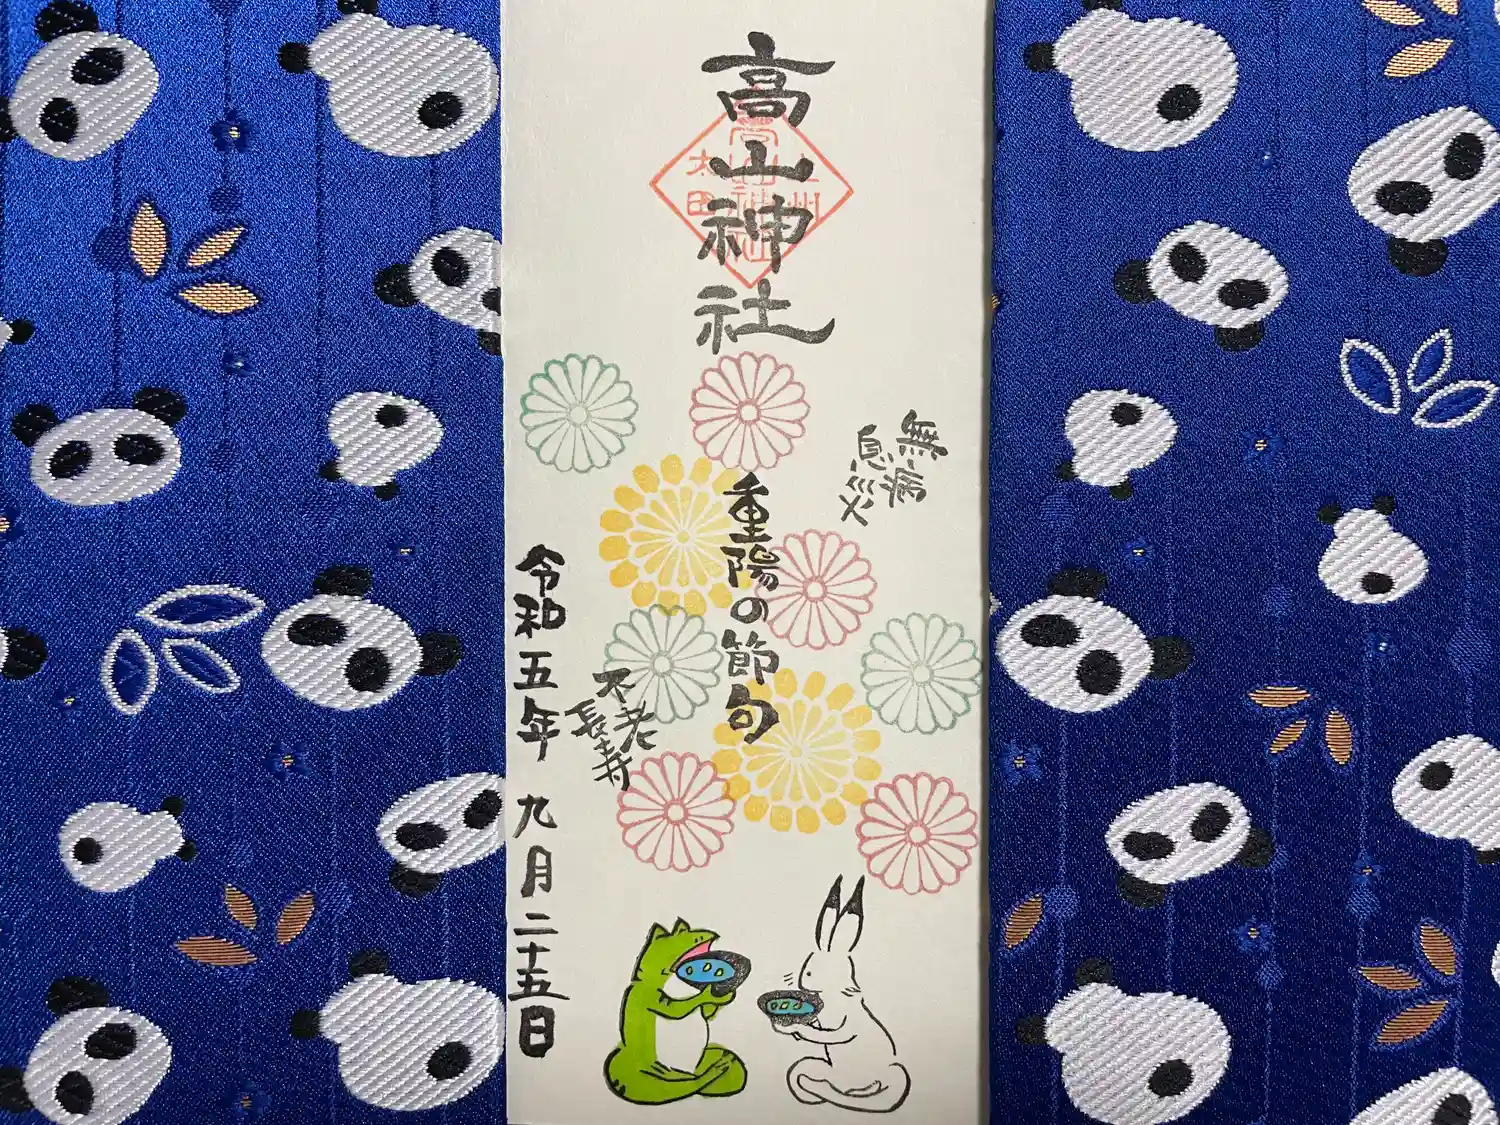 高山神社
上州
高山神社
太田
無病
息災
重陽の節句
不老
長寿
令和五年 九月二十五日